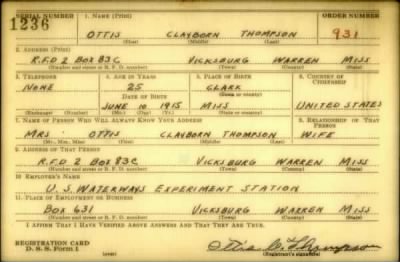 SERIAL NUMBER 1. NAME (Print) ORDER NUMBER
1236 OTTIS CLAYBORN THOMPSON 931
(First) (Middle) (Last)
2. ADDRESS (Print)
R.F.D 2 BOX 83C VICKSBURG WARREN MISS
(Number and street or R. F. D. number) (Town) (County) (State)
3. TELEPHONE 4. AGE IN YEARS 5. PLACE OF BIRTH 6. COUNTRY OF CITIZENSHIP
NONE 25 CLARK
DATE OF BIRTH (Town or county)
JUNE 10 1915 MISS UNITED STATES
(Exchange) (Number) (Mo.) (Day) (Yr.) (State or country)
7. NAME OF PERSON WHO WILL ALWAYS KNOW YOUR ADDRESS 8. RELATIONSHIP OF THAT PERSON
MRS OTTIS CLAYBORN THOMPSON WIFE
(Mr., Mrs., Miss) (First) (Middle) (Last)
9. ADDRESS OF THAT PERSON
R.F.D 2 BOX 83C VICKSBURG WARREN MISS
(Number and street or R. F. D. number) (Town) (County) (State)
10. EMPLOYER'S NAME
U.S. WATERWAYS EXPERIMENT STATION
11. PLACE OF EMPLOYMENT OR BUSINESS
BOX 631 VICKSBURG WARREN MISS
(Number and street or R. F. D. number) (Town) (County) (State)
I AFFIRM THAT I HAVE VERIFIED ABOVE ANSWERS AND THAT THEY ARE TRUE.
REGISTRATION CARD
D. S. S. Form 1 (over) (Registrant's signature)